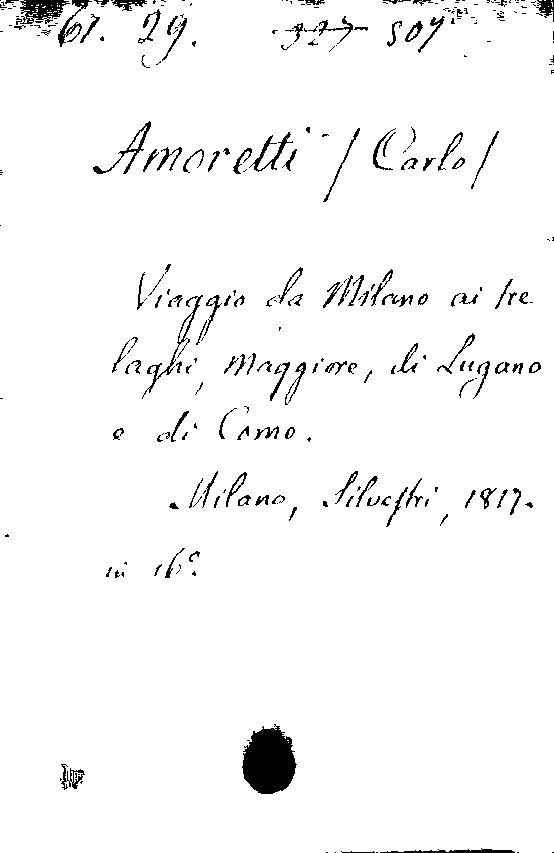 61. 29. 327 507
Amoretti / Carlo /
Viaggio da Milano ai tre
laghi, Maggiore, di Lugano
e di Como.
Milano, Silvestri, 1817.
in 16º